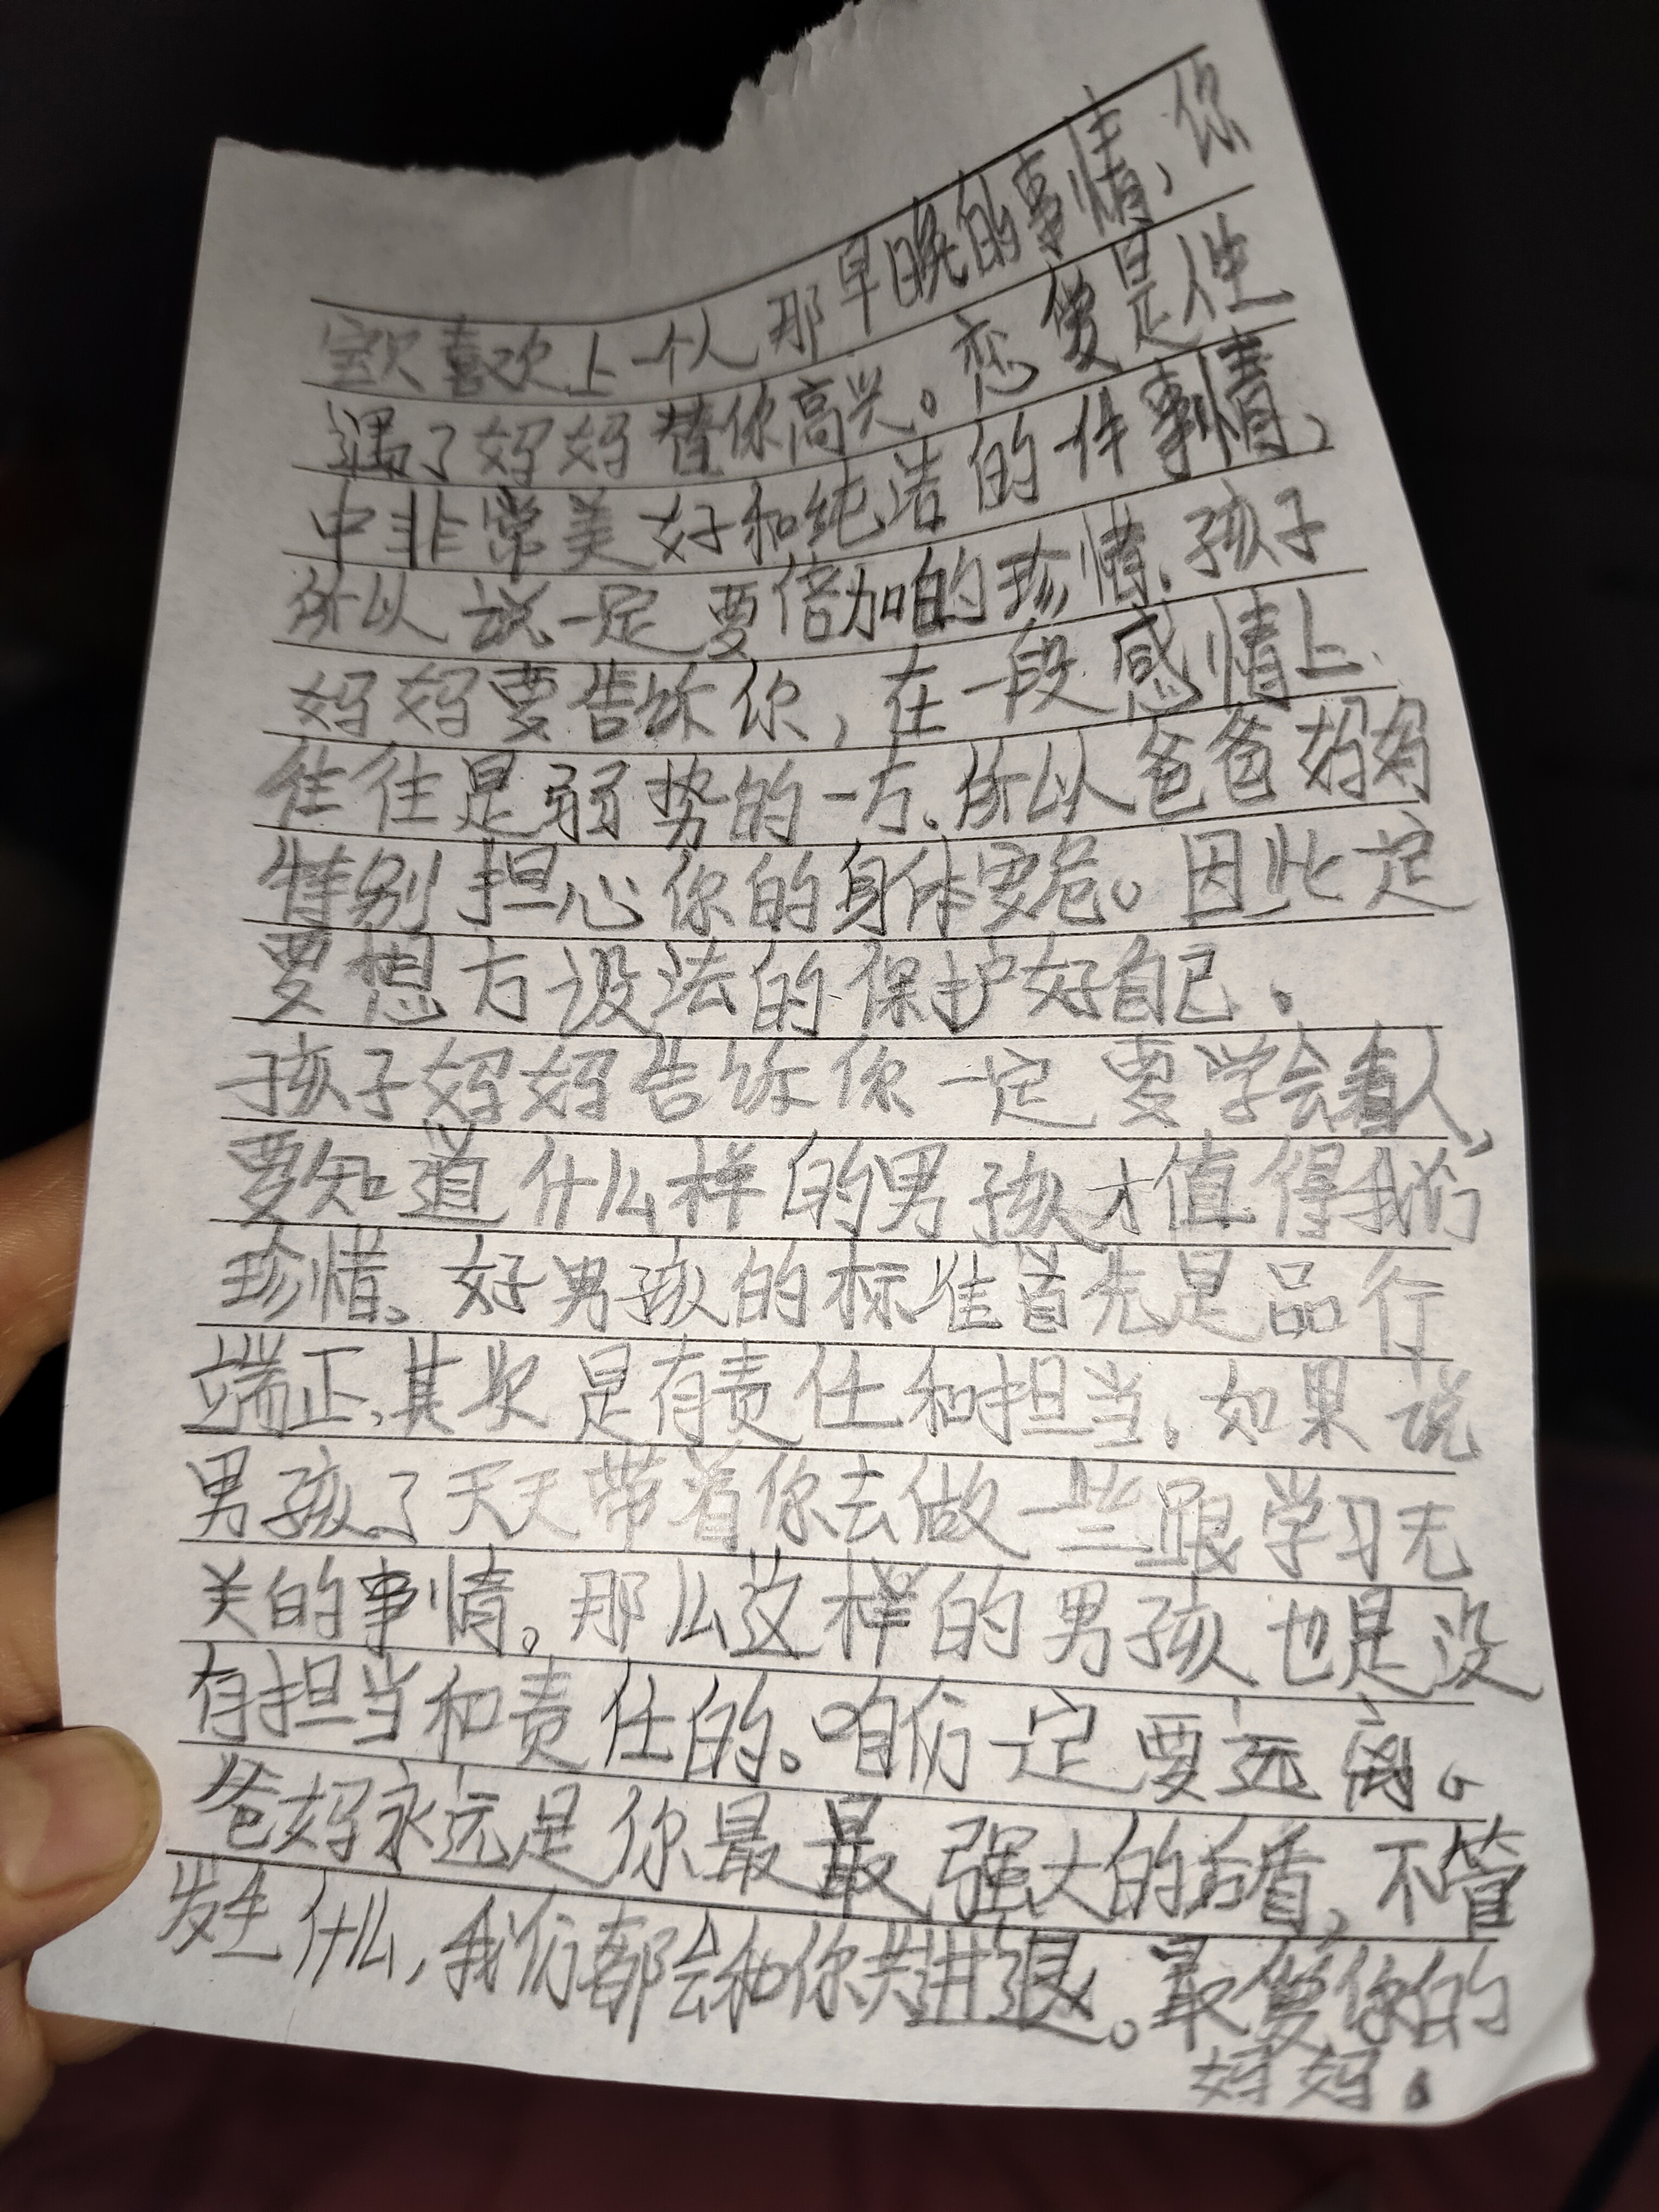 宝贝喜欢上一个人那早晚的事情，你
遇了妈妈替你高兴。恋爱是人生
中非常美好和纯洁的一件事情，
所以说一定要倍加的珍惜、孩子
妈妈要告诉你，在一段感情上、
往往是弱势的一方、所以爸爸妈妈
特别担心你的身体安危。因此一定
要想方设法的保护好自己、
孩子妈妈告诉你一定要学会看人、
要知道什么样的男孩才值得我们
珍惜。好男孩的标准首先是品行
端正、其次是有责任和担当，如果说
男孩子天天带着你去做一些跟学习无
关的事情。那么这样的男孩也是没
有担当和责任的。咱们一定要远离。
爸妈永远是你最最强大的后盾，不管
发生什么，我们都会和你共进退。最爱你的
妈妈。